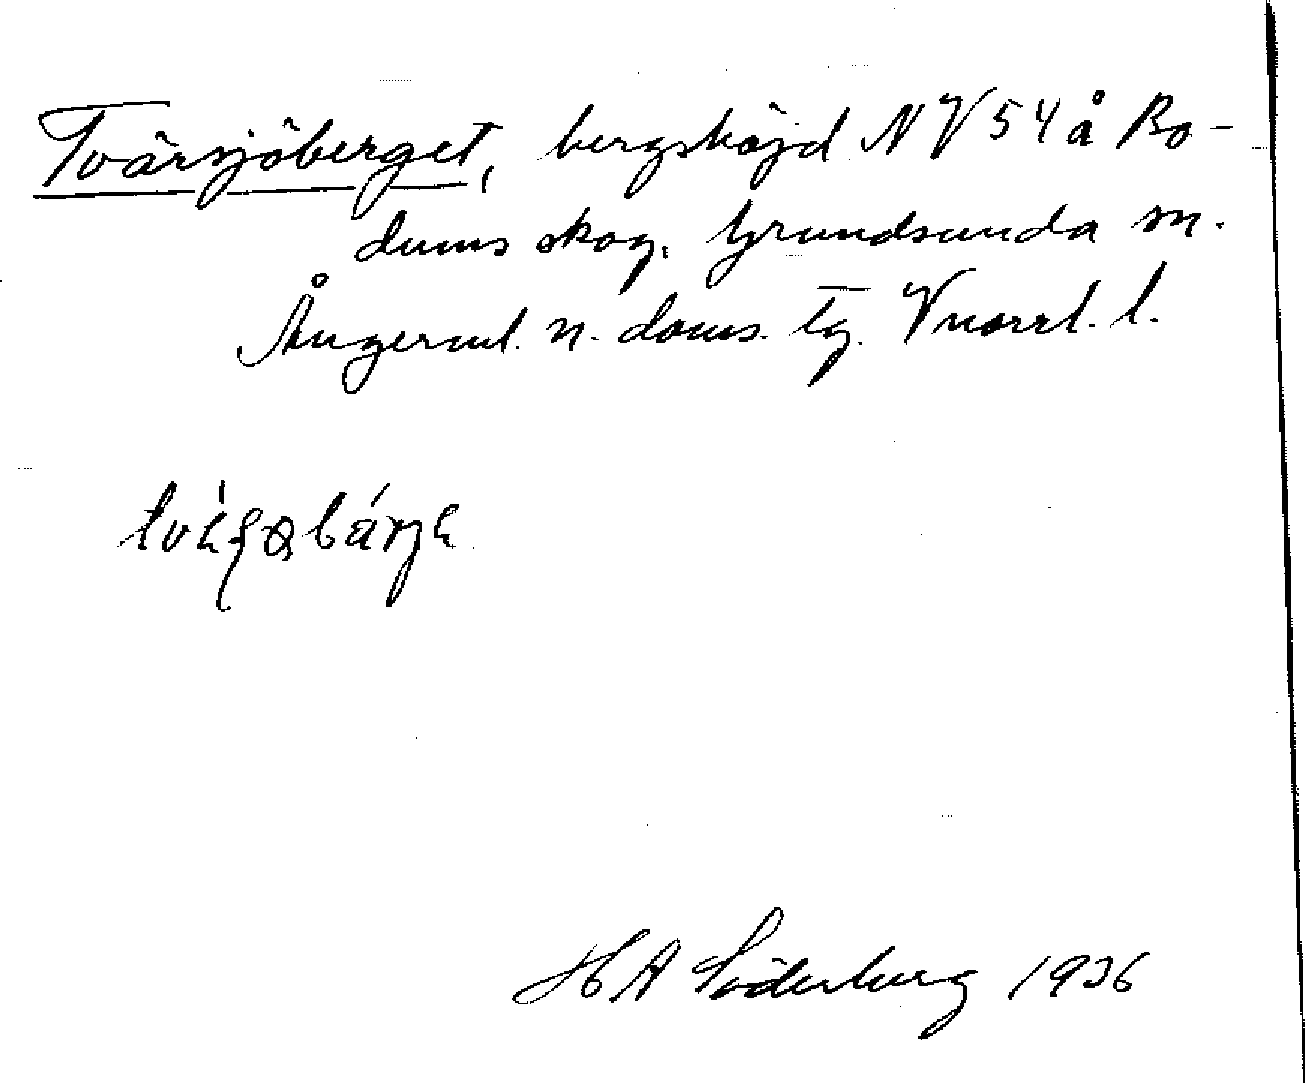 Tvärsjöberget, bergshöjd NV 54 å Bo-
dums skog, Grundsunda sn.
Ångerml. n. doms. tg. Vnorrl. l.
H A Söderberg 1936